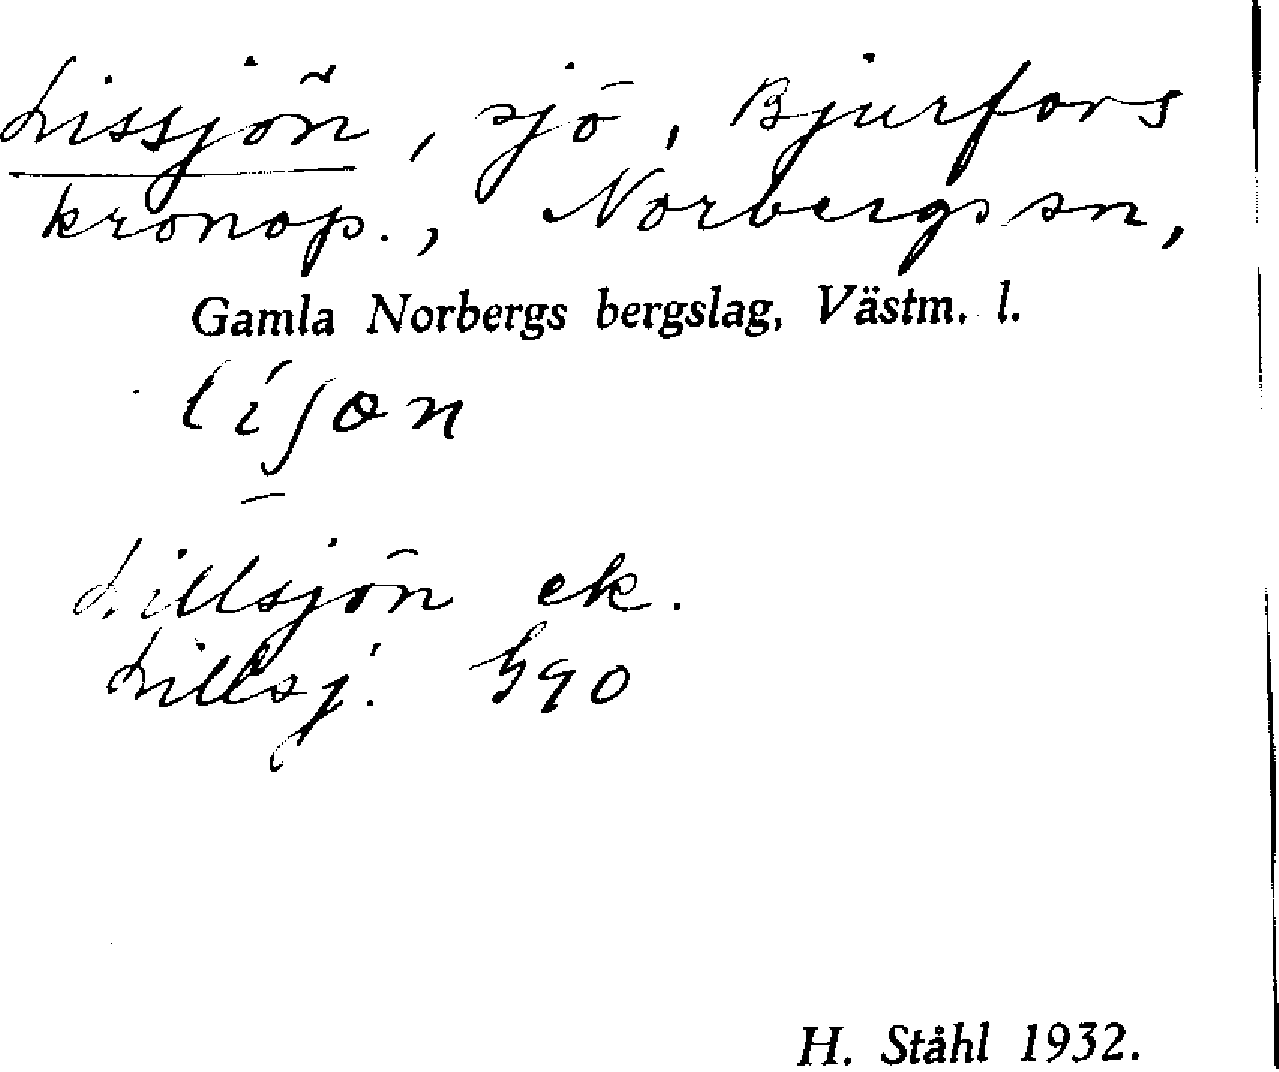 Lissjön, sjö, Bjurfors
kronop., Norbergs sn,
Gamla Norbergs bergslag, Västm. l.
líʃøn
Lillsjön ek.
Lillsj.
H. Ståhl 1932.